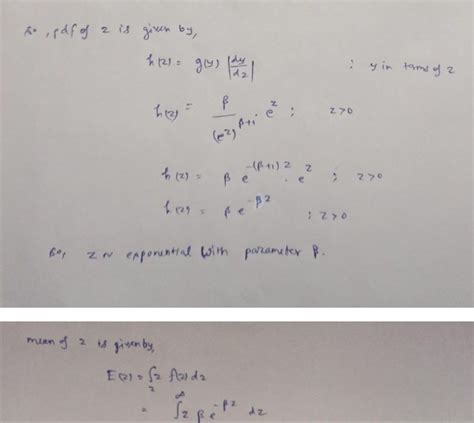 So, pdf of z is given by,
h(z) = g(y) |dy/dz| ; y in terms of z
h(z) = β/(e^z)^{β+1} e^z ; z>0
h(z) = β e^{-(β+1)z} . e^z ; z>0
h(z) = β e^{-βz} ; z>0
So, z ~ exponential with parameter β.
mean of z is given by,
E(z) = ∫_z z f(z) dz
= ∫^∞ z β e^{-βz} dz